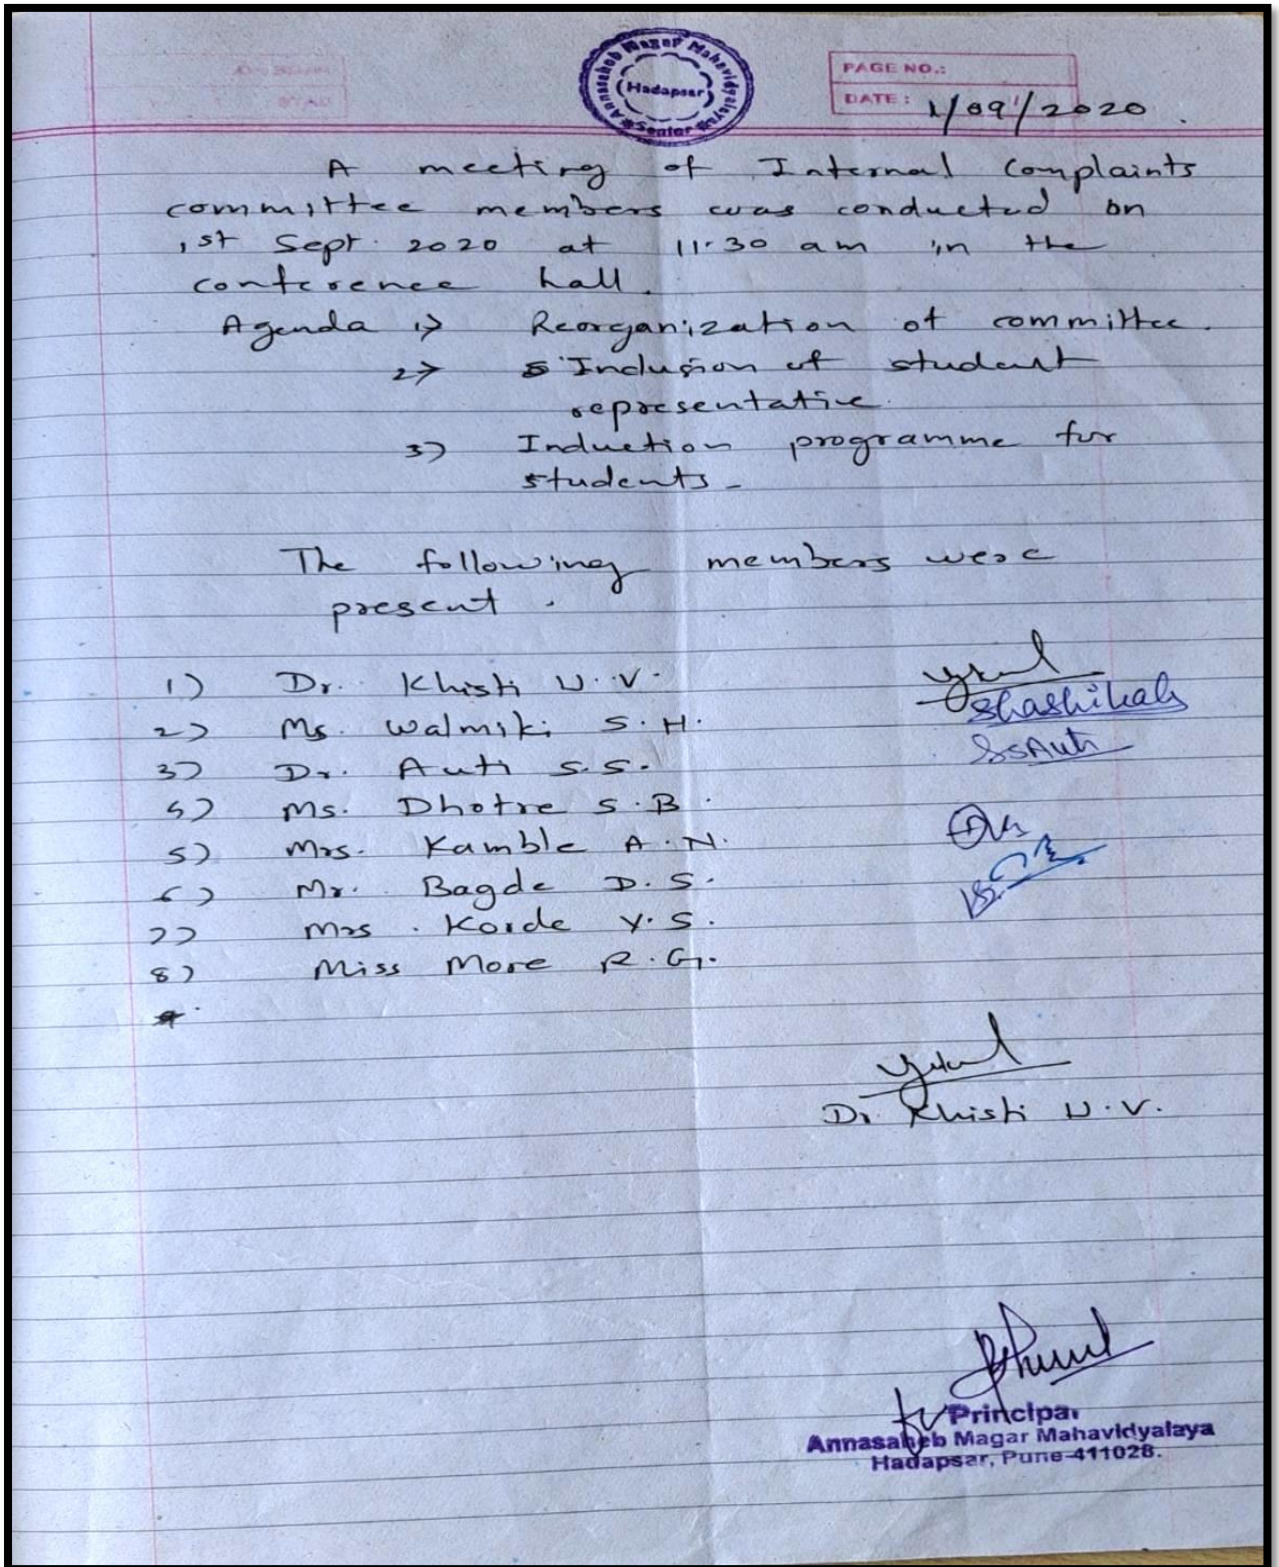 Annasaheb Magar Mahavidyalaya
Hadapsar
Senior
PAGE NO.:
DATE: 1/09/2020.
A meeting of Internal Complaints
committee members was conducted on
1st Sept. 2020 at 11.30 am in the
conference hall.
Agenda 1) Reorganization of committee.
2) Inclusion of student
representative.
3) Induction programme for
students.
The following members were
present.
1) Dr. Khisti U.V.
2) Ms. Walmiki S.H. Shashikala
3) Dr. Auti S.S. SSAuti
4) Ms. Dhotre S.B.
5) Mrs. Kamble A.N.
6) Mr. Bagde D.S.
7) Mrs. Korde Y.S.
8) Miss More R.G.
Dr Khisti U.V.
Principal
Annasaheb Magar Mahavidyalaya
Hadapsar, Pune-411028.